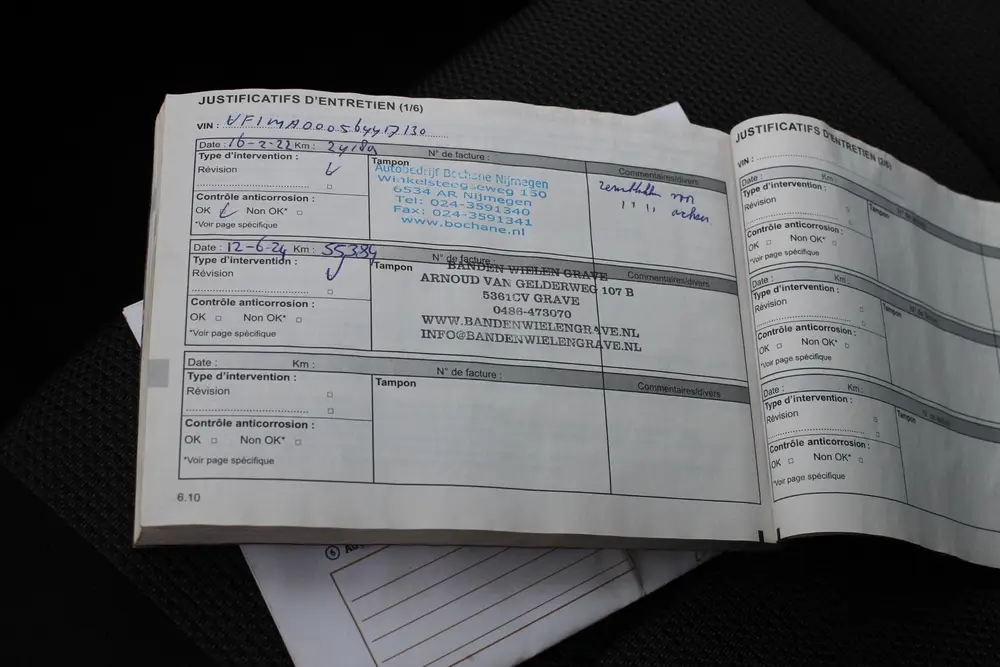 JUSTIFICATIFS D'ENTRETIEN (1/6)
VIN : VF1MA000564417130
Date : 16-2-22 Km : 24189
N° de facture :
Type d'intervention :
Révision
Tampon
Autobedrijf Bochane Nijmegen
Winkelsteegseweg 150
6534 AR Nijmegen
Tel: 024-3591340
Fax: 024-3591341
www.bochane.nl
Commentaires/divers
Contrôle anticorrosion :
OK Non OK*
*Voir page spécifique
Date : 12-6-24 Km : 55384
N° de facture :
Type d'intervention :
Révision
Tampon
BANDEN WIELEN GRAVE
ARNOUD VAN GELDERWEG 107 B
5361CV GRAVE
0486-473070
WWW.BANDENWIELENGRAVE.NL
INFO@BANDENWIELENGRAVE.NL
Commentaires/divers
Contrôle anticorrosion :
OK Non OK*
*Voir page spécifique
Date : Km :
N° de facture :
Type d'intervention :
Révision
Tampon
Commentaires/divers
Contrôle anticorrosion :
OK Non OK*
*Voir page spécifique
6.10
JUSTIFICATIFS D'ENTRETIEN
VIN :
Date : Km :
Type d'intervention :
Révision
Tampon
Contrôle anticorrosion :
OK Non OK*
*Voir page spécifique
Date : Km :
Type d'intervention :
Révision
Tampon
Contrôle anticorrosion :
OK Non OK*
*Voir page spécifique
Date : Km :
Type d'intervention :
Révision
Tampon
Contrôle anticorrosion :
OK Non OK*
*Voir page spécifique